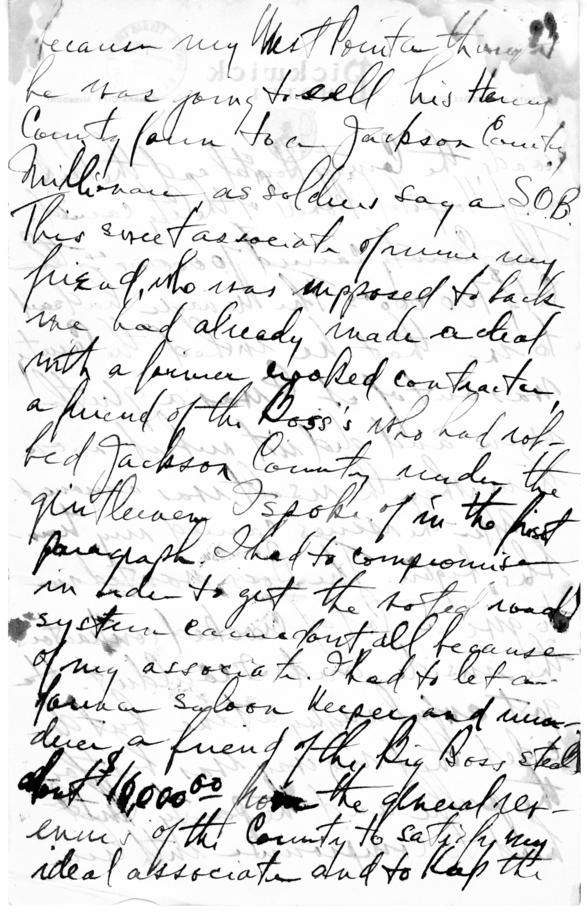 because my West Pointer
he was going to sell his Henry
County farm to a Jackson County
Millionaire as soldiers say a S.O.B.
This sweet associate of mine my
friend, who was supposed to back
me had already made a deal
with a former crooked contractor,
a friend of the Boss's who had rob-
bed Jackson County under the
gentlemen I spoke of in the first
paragraph. I had to compromise
in order to get the voted road
system carried out all because
of my associate. I had to let a
former saloon keeper and mur-
derer, a friend of the Big Boss steal
about $10,000 00 from the general rev-
enues of the County to satisfy my
ideal associate and to keep the